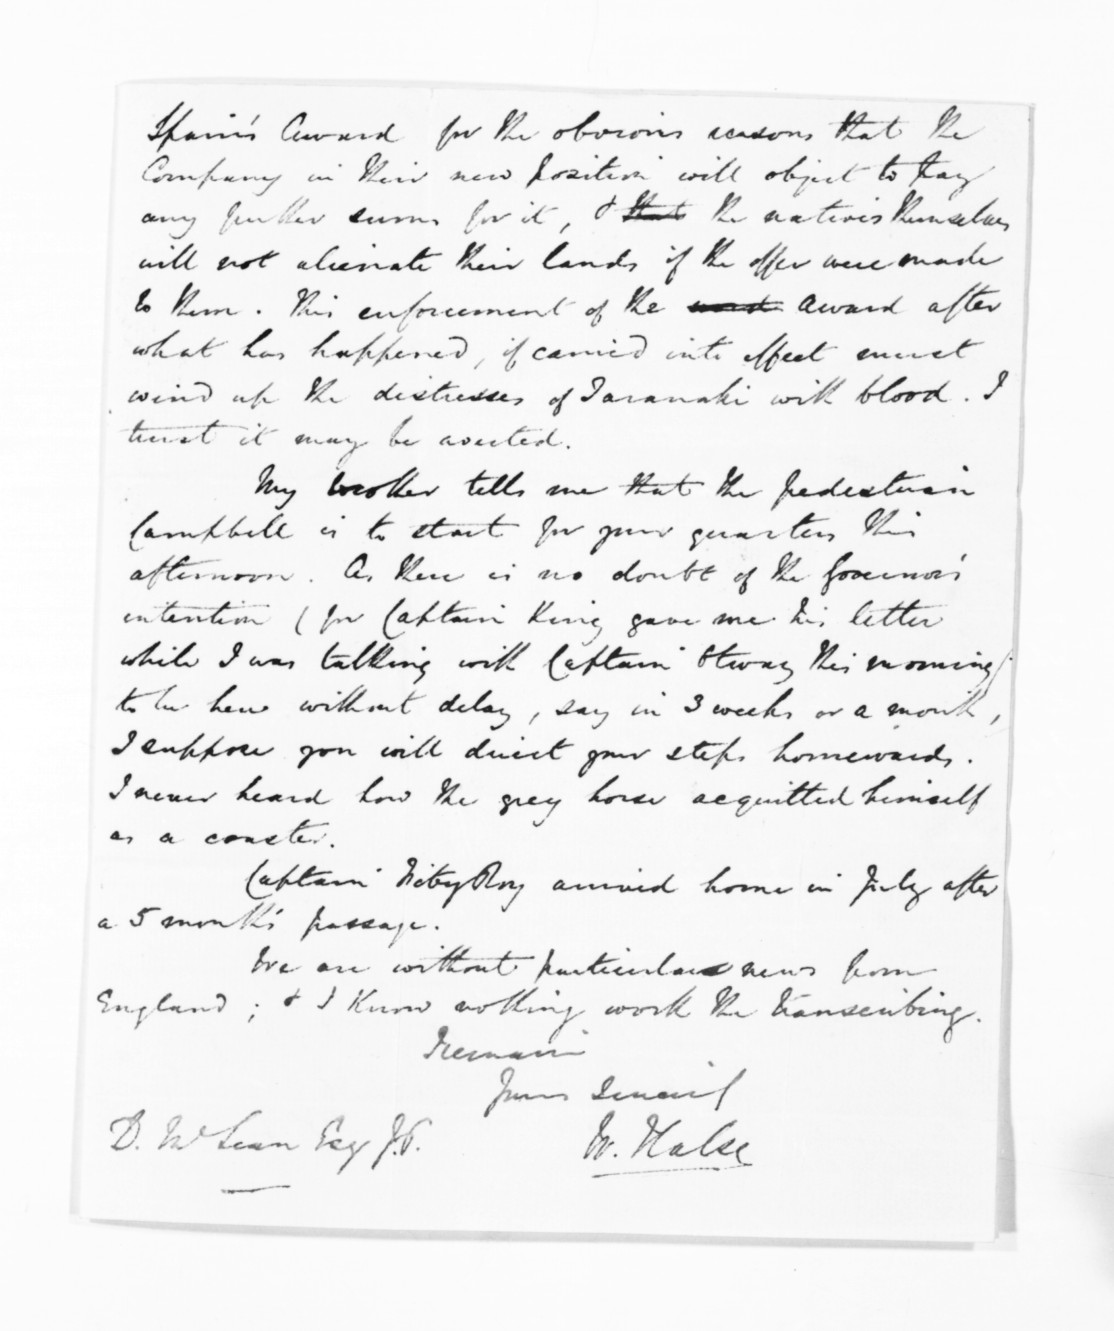 Spain's Award for the obvious reasons that the
Company in their new position will object to pay
any further sums for it, & that the natives themselves
will not alienate their lands if the offer were made
to them. This enforcement of the Award after
what has happened, if carried into effect must
wind up the distresses of Taranaki with blood. I
trust it may be averted.
My brother tells me that the pedestrian
Campbell is to start for your quarters this
afternoon. As there is no doubt of the Governor's
intention (for Captain King gave me his letter
while I was talking with Captain Otway this morning)
to be here without delay, say in 3 weeks or a month,
I suppose you will direct your steps homewards.
I never heard how the grey horse acquitted himself
as a coaster.
Captain FitzRoy arrived home in July after
a 5 month's passage.
We are without particular news from
England; & I know nothing worth the transcribing.
I remain
Yours sincerely
D. McLean Esq J.P.
W. Halse